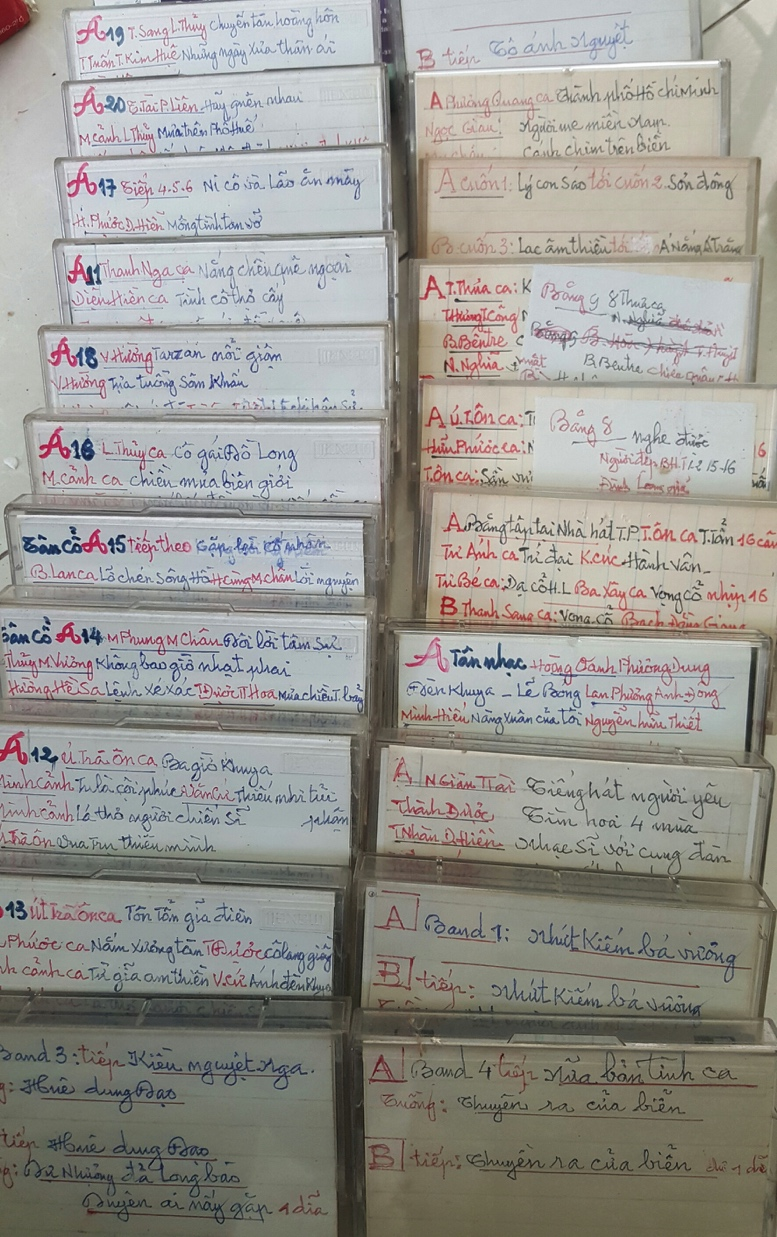 A19 T. Sang L. Thủy Chuyến tàu hoàng hôn
T Tuấn T. Kim Huê Những ngày xưa thân ái
A20 T. Tài P. Liên Hãy quên nhau
M. Cảnh L Thủy Mưa trên Phố Huế
A17 Tiếp 4.5.6 Ni cô và Lão ăn mày
H. Phước D. Hiền Mộng tình tan vỡ
A11 Thanh Nga ca Nắng chiều quê ngoại
Diệu Hiền ca Tình cô thợ cấy
A18 V. Hương Tarzan nổi giận
V. Hương Trịa tuồng Sân Khấu
A16 L. Thủy ca Cô gái Đồ Long
M. Cảnh ca chiều mưa biên giới
Tân Cổ A15 tiếp theo
B. Lan ca Lỡ chén Sông Hồ H. Cúng M. Châu Lối nguyện
Tân Cổ A14 M Phụng M Châu Đôi lời tâm sự
Thủy M. Vương Không bao giờ nhạt phai
Hương Hồ Sa Lệnh xé xác T Được T Hoa Mưa chiều T. bảy
A12 Ú. Trà Ôn ca Ba giờ Khuya
Minh Cảnh Tu là cội phúc Văn Cứ Thiếu nhi tiền
Minh Cảnh Lá thơ người chiến Sĩ
Trà Ôn Vua Trụ thiêu mình
13 Út Trà Ôn ca Tôn Tẩn giả điên
Phước ca Nấm xương tàn T Được Cô lang giếng
cảnh ca Từ giả am thiền V. Cứ Ánh đèn Khuya
Band 3: tiếp Kiều nguyệt Nga.
Huê dung Đạo
tiếp Huê dung Đạo
Dư Nhưỡng đả long bào
Duyên ai nấy gặp 1 dĩa
B tiếp Tô ánh Nguyệt
A Phương Quang ca Thành phố Hồ chí Minh
Ngọc Giàu: Người mẹ miền Nam
Canh chim trên Biển
A cuốn 1: Lý con Sáo tới cuốn 2. Sơn đông
B. cuốn 3: Lạc âm thiều tới A' Nắng S Trăng
A T. Thừa ca: K
T. Hương T. Công
B. Bến tre
N. Nghĩa
Băng 9 8 Thừa ca
N. Nghĩa
B. Bentre
A Ú. T. Ôn ca: T
Hữu Phước ca:
T. Ôn ca:
Băng 8 nghe được
Người đẹp B.H.T. 1-2 15-16
A Băng tập tại Nhà hát T.P. T. Ôn ca T. Tẩn 16 câu
Trí Ánh ca Trí đai K. Cúc Hành Vân
Trí Bé ca: Dạ cổ H.L Ba Xây ca Vọng Cổ nhịp 16
B Thanh Sang ca: Vọng Cổ Bạch Đằng Giang
A Tân nhạc Hoàng Oanh Phương Dung
Đèn Khuya - Lể Bóng Lan Phương Anh - Đông
Minh Hiếu Nàng Xuân của tôi Nguyễn hữu Thiết
A N Giàu T Tài Tiếng hát người yêu
Thành Được Tìm hoa 4 mùa
T Nhàn D. Hiền Nhạc Sĩ với cung đàn
A Band 1: Nhứt Kiếm bá vương
B tiếp: Nhứt Kiếm bá vương
A Band 4 tiếp Nữa bản tình ca
Tuồng: Thuyền ra cửa biển
B tiếp: Thuyền ra cửa biển